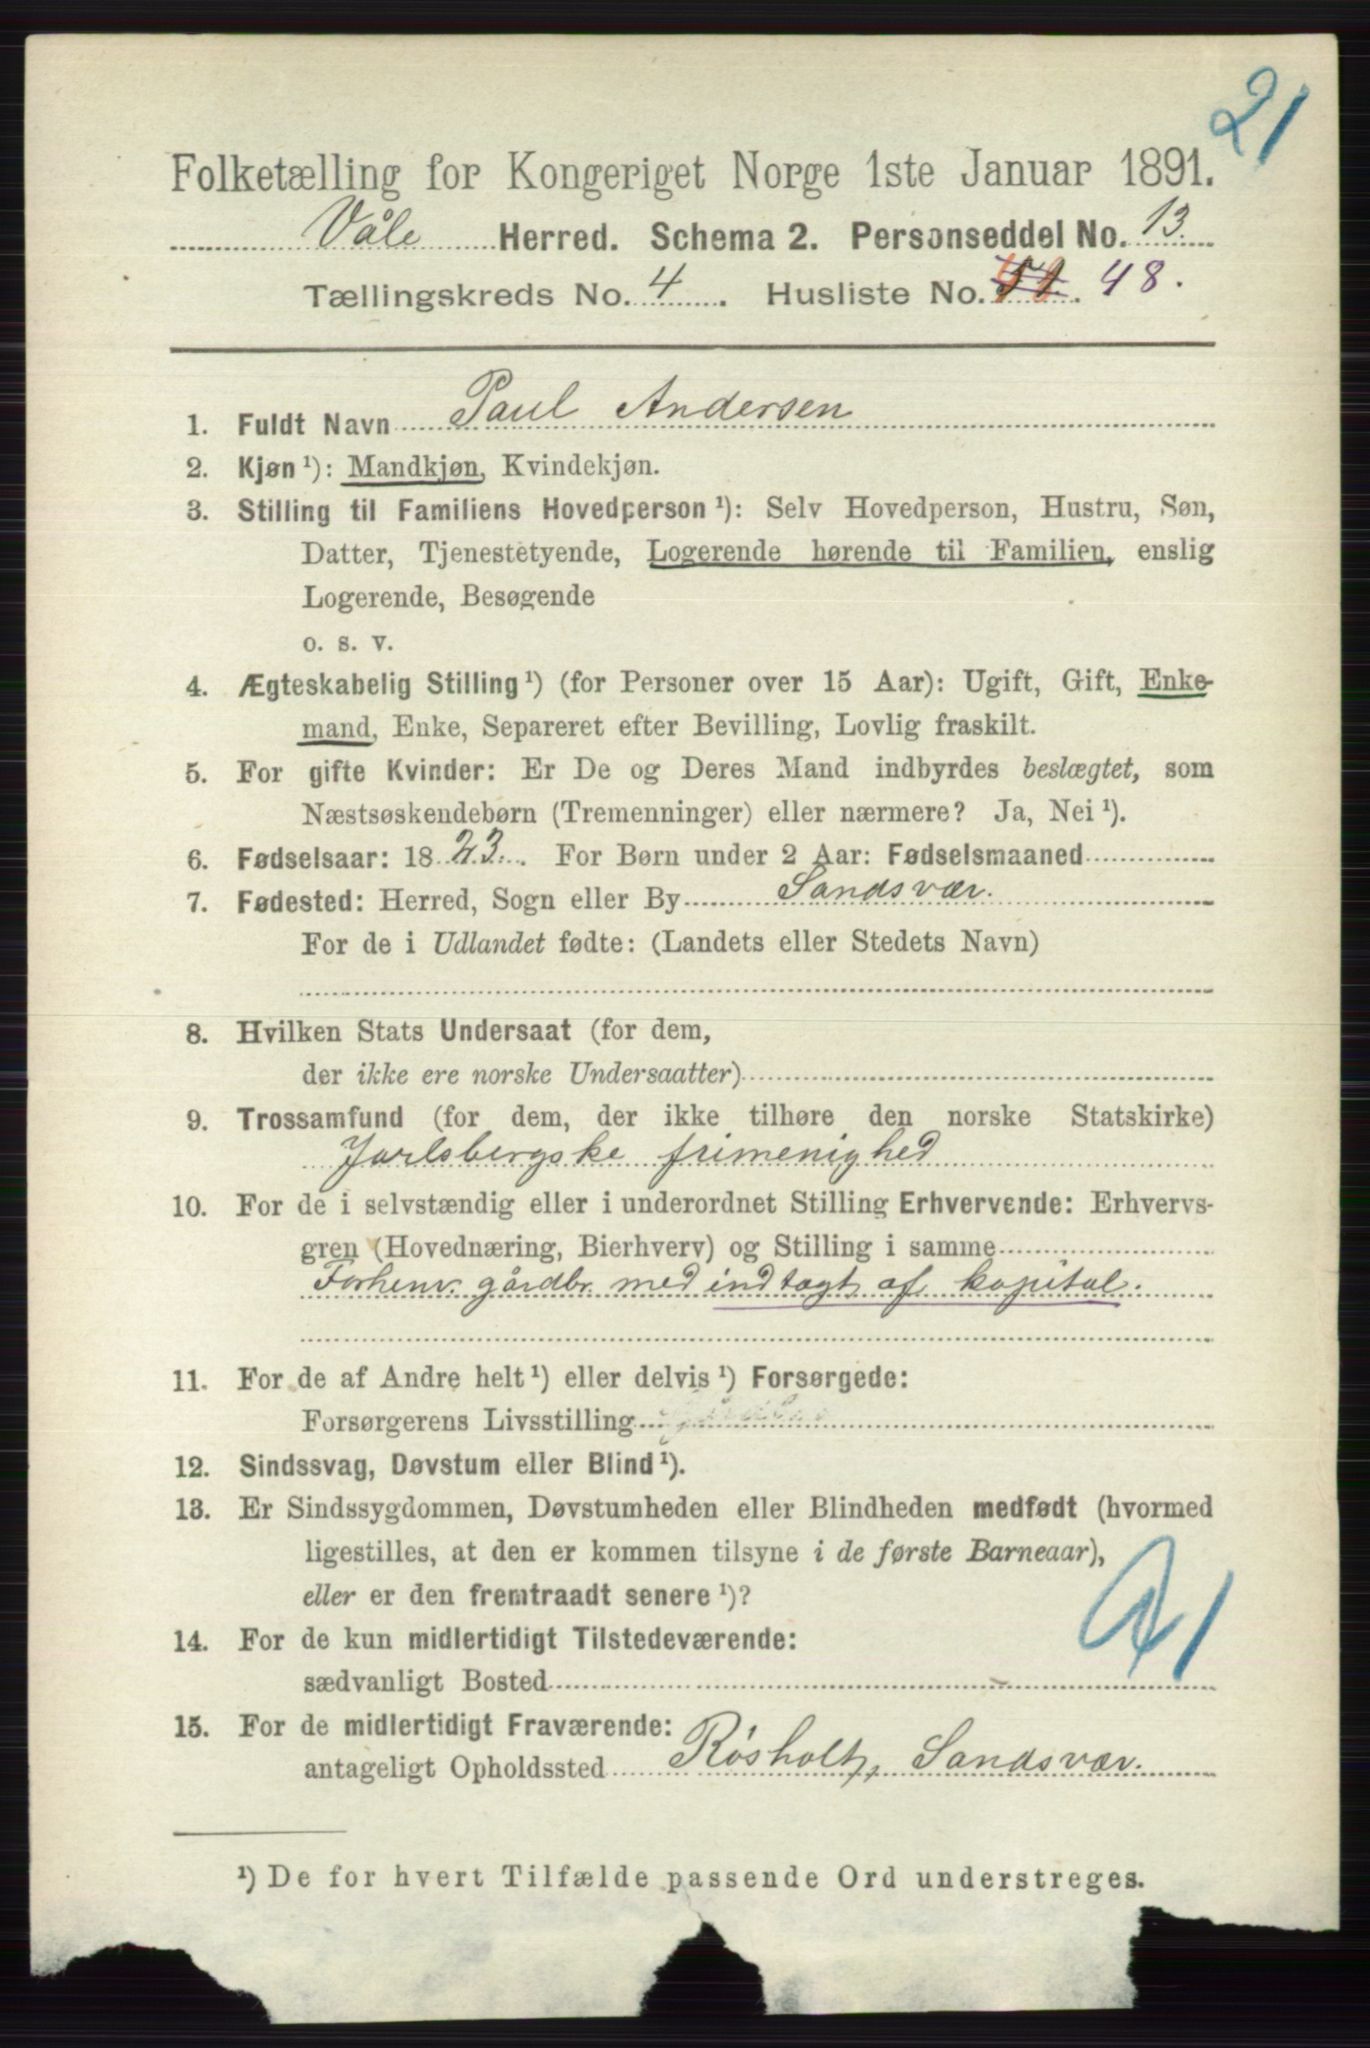 21
Folketælling for Kongeriget Norge 1ste Januar 1891.
Våle Herred. Schema 2. Personseddel No. 13.
Tællingskreds No. 4. Husliste No. 48.
1. Fuldt Navn Paul Andersen
2. Kjøn ¹): Mandkjøn, Kvindekjøn.
3. Stilling til Familiens Hovedperson ¹): Selv Hovedperson, Hustru, Søn,
Datter, Tjenestetyende, Logerende hørende til Familien, enslig
Logerende, Besøgende
o. s. v.
4. Ægteskabelig Stilling ¹) (for Personer over 15 Aar): Ugift, Gift, Enke-
mand, Enke, Separeret efter Bevilling, Lovlig fraskilt.
5. For gifte Kvinder: Er De og Deres Mand indbyrdes beslægtet, som
Næstsøskendebørn (Tremenninger) eller nærmere? Ja, Nei ¹).
6. Fødselsaar: 1823. For Børn under 2 Aar: Fødselsmaaned
7. Fødested: Herred, Sogn eller By Sandsvær.
For de i Udlandet fødte: (Landets eller Stedets Navn)
8. Hvilken Stats Undersaat (for dem,
der ikke ere norske Undersaatter)
9. Trossamfund (for dem, der ikke tilhøre den norske Statskirke)
Jarlsbergske frimenighed
10. For de i selvstændig eller i underordnet Stilling Erhvervende: Erhvervs-
gren (Hovednæring, Bierhverv) og Stilling i samme
Forhenv. gårdbr. med indtægt af kapital.
11. For de af Andre helt ¹) eller delvis ¹) Forsørgede:
Forsørgerens Livsstilling
12. Sindssvag, Døvstum eller Blind ¹).
13. Er Sindssygdommen, Døvstumheden eller Blindheden medfødt (hvormed
ligestilles, at den er kommen tilsyne i de første Barneaar),
eller er den fremtraadt senere ¹)?
14. For de kun midlertidigt Tilstedeværende:
sædvanligt Bosted
21
15. For de midlertidigt Fraværende:
antageligt Opholdssted Røsholt, Sandsvær.
¹) De for hvert Tilfælde passende Ord understreges.